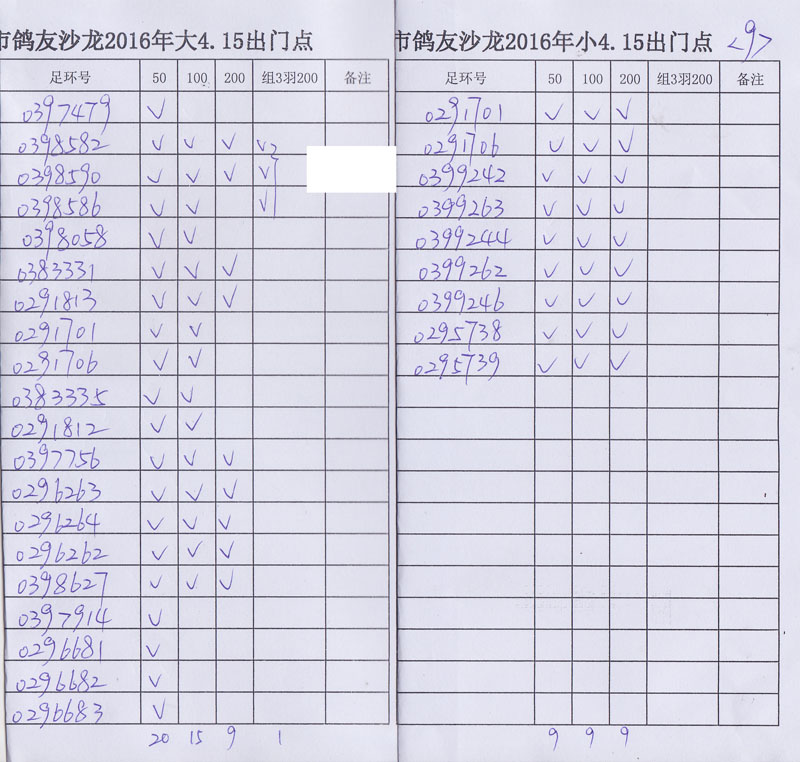 市鸽友沙龙2016年大4.15出门点
足环号 50 100 200 组3羽200 备注
0397479 V
0398582 V V V V2
0398590 V V V V
0398586 V V V
0398058 V V
0383331 V V V
0291813 V V V
0291701 V V
0291706 V V
0383335 V V
0291812 V V
0397756 V V V
0296263 V V V
0296264 V V V
0296262 V V V
0398627 V V V
0397914 V
0296681 V
0296682 V
0296683 V
20 15 9 1
市鸽友沙龙2016年小4.15出门点 <9>
足环号 50 100 200 组3羽200 备注
0291701 V V V
0291706 V V V
0399242 V V V
0399263 V V V
0399244 V V V
0399262 V V V
0399246 V V V
0295738 V V V
0295739 V V V
9 9 9